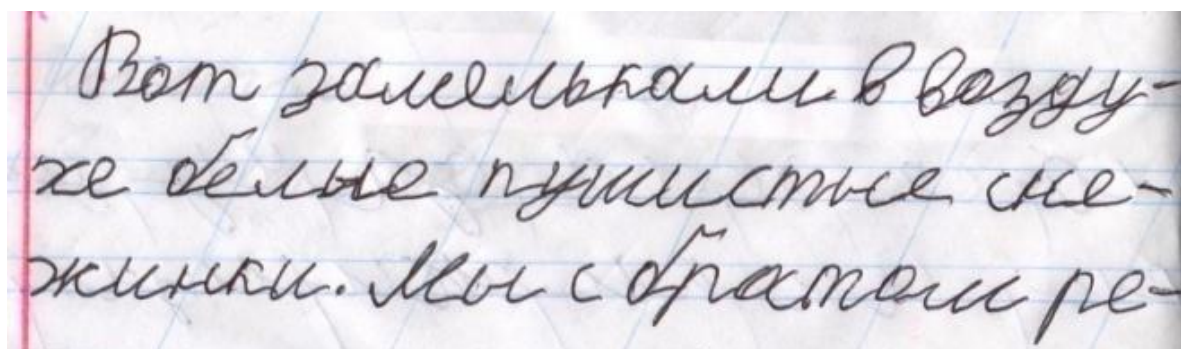 Вот замелькали в возду-
хе белые пушистые сне-
жинки. Мы с братом ре-